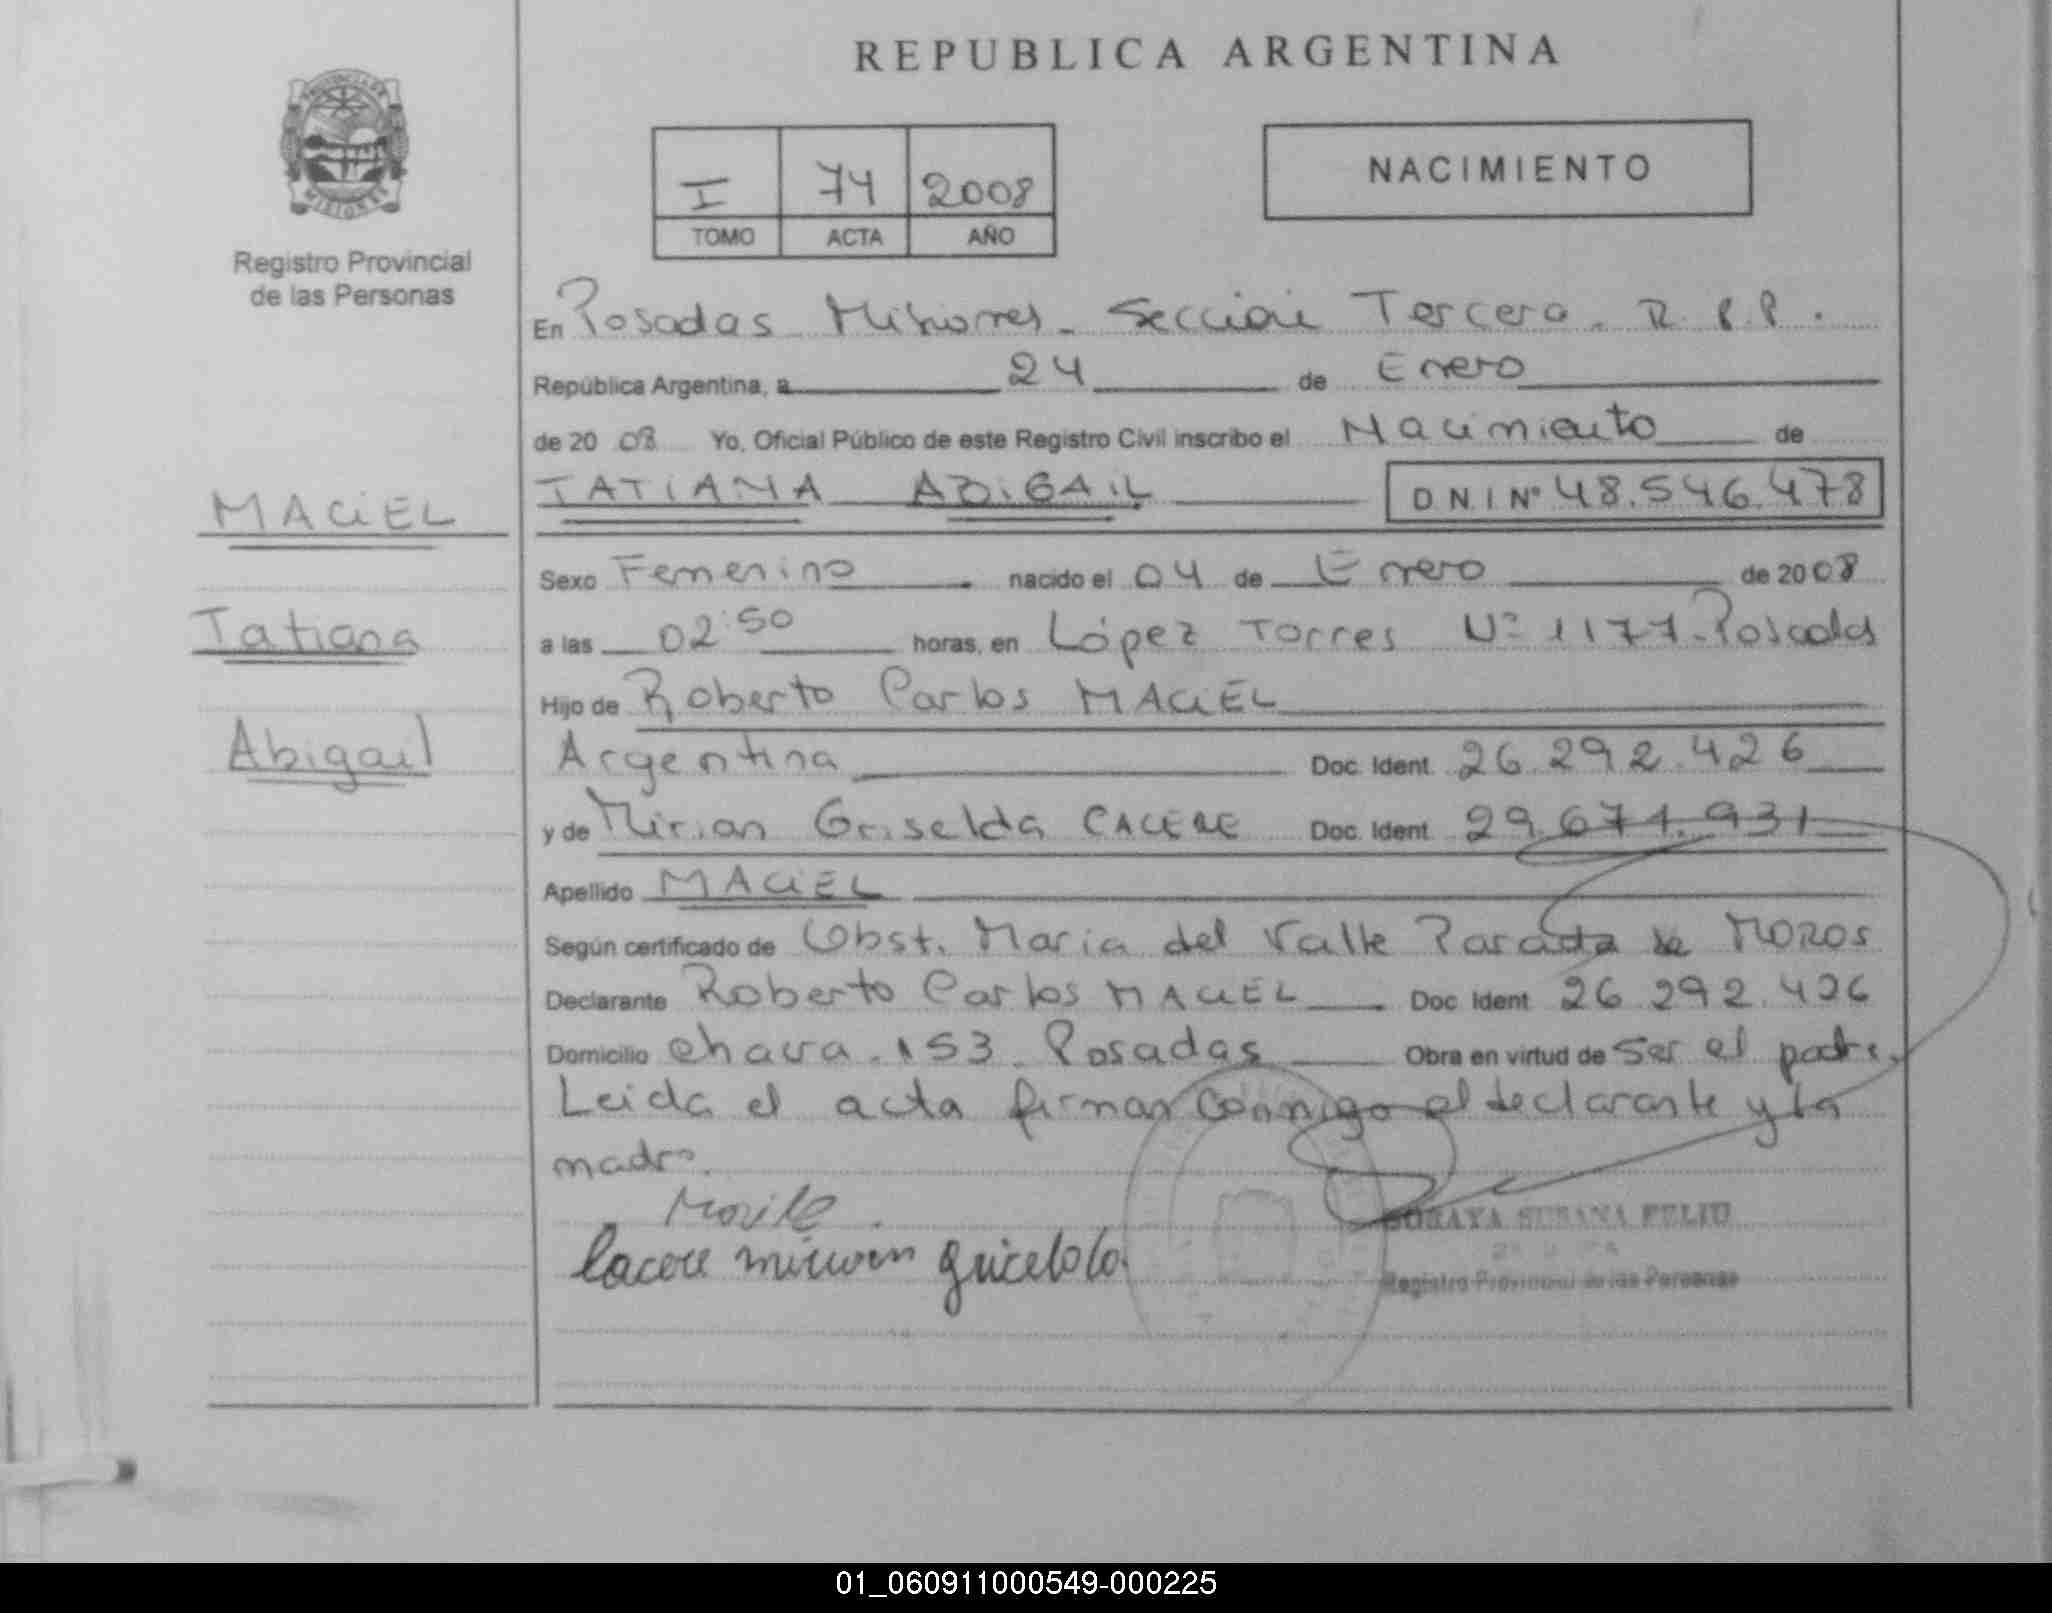 REPUBLICA ARGENTINA
PROVINCIA DE
MISIONES
Registro Provincial
de las Personas
I 74 2008
TOMO ACTA AÑO
NACIMIENTO
En Posadas Misiones. Sección Tercera. R.P.P.
República Argentina, a 24 de Enero
de 2008 Yo, Oficial Público de este Registro Civil inscribo el Nacimiento de
TATIANA ABIGAIL D.N.I Nº 48.546.478
MACIEL
Tatiana
Abigail
Sexo Femenino nacido el 04 de Enero de 2008
a las 02:50 horas, en López Torres Nº 1177-Posadas
Hijo de Roberto Carlos MACIEL
Argentina Doc. Ident. 26.292.426
y de Mirian Griselda CACERE Doc. Ident. 29.671.931
Apellido MACIEL
Según certificado de Obst. Maria del Valle Parada de MOROS
Declarante Roberto Carlos MACIEL Doc Ident 26.292.426
Domicilio chacra.153. Posadas Obra en virtud de ser el padre.
Leida el acta firman conmigo el declarante y la
madre.
Cacere miriam gricelda.
SORAYA SUSANA FELIU
Registro Provincial de las Personas
01_060911000549-000225